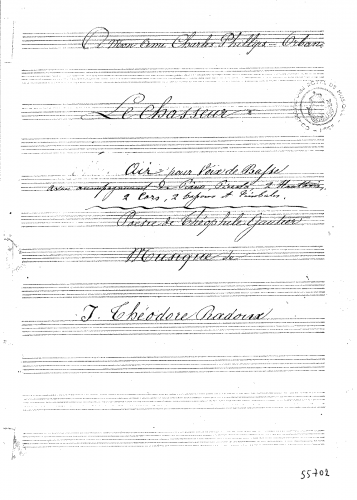 A mon ami Charles Phillips – Orban
Le chasseur
Air pour Voix de Basse
avec accompagnement de Piano, Piccolo, 2 Hautbois,
2 Cors, 2 Bassons et Timbales.
Poésie de Théophile Gautier
Musique de
J. Théodore Radoux
55702